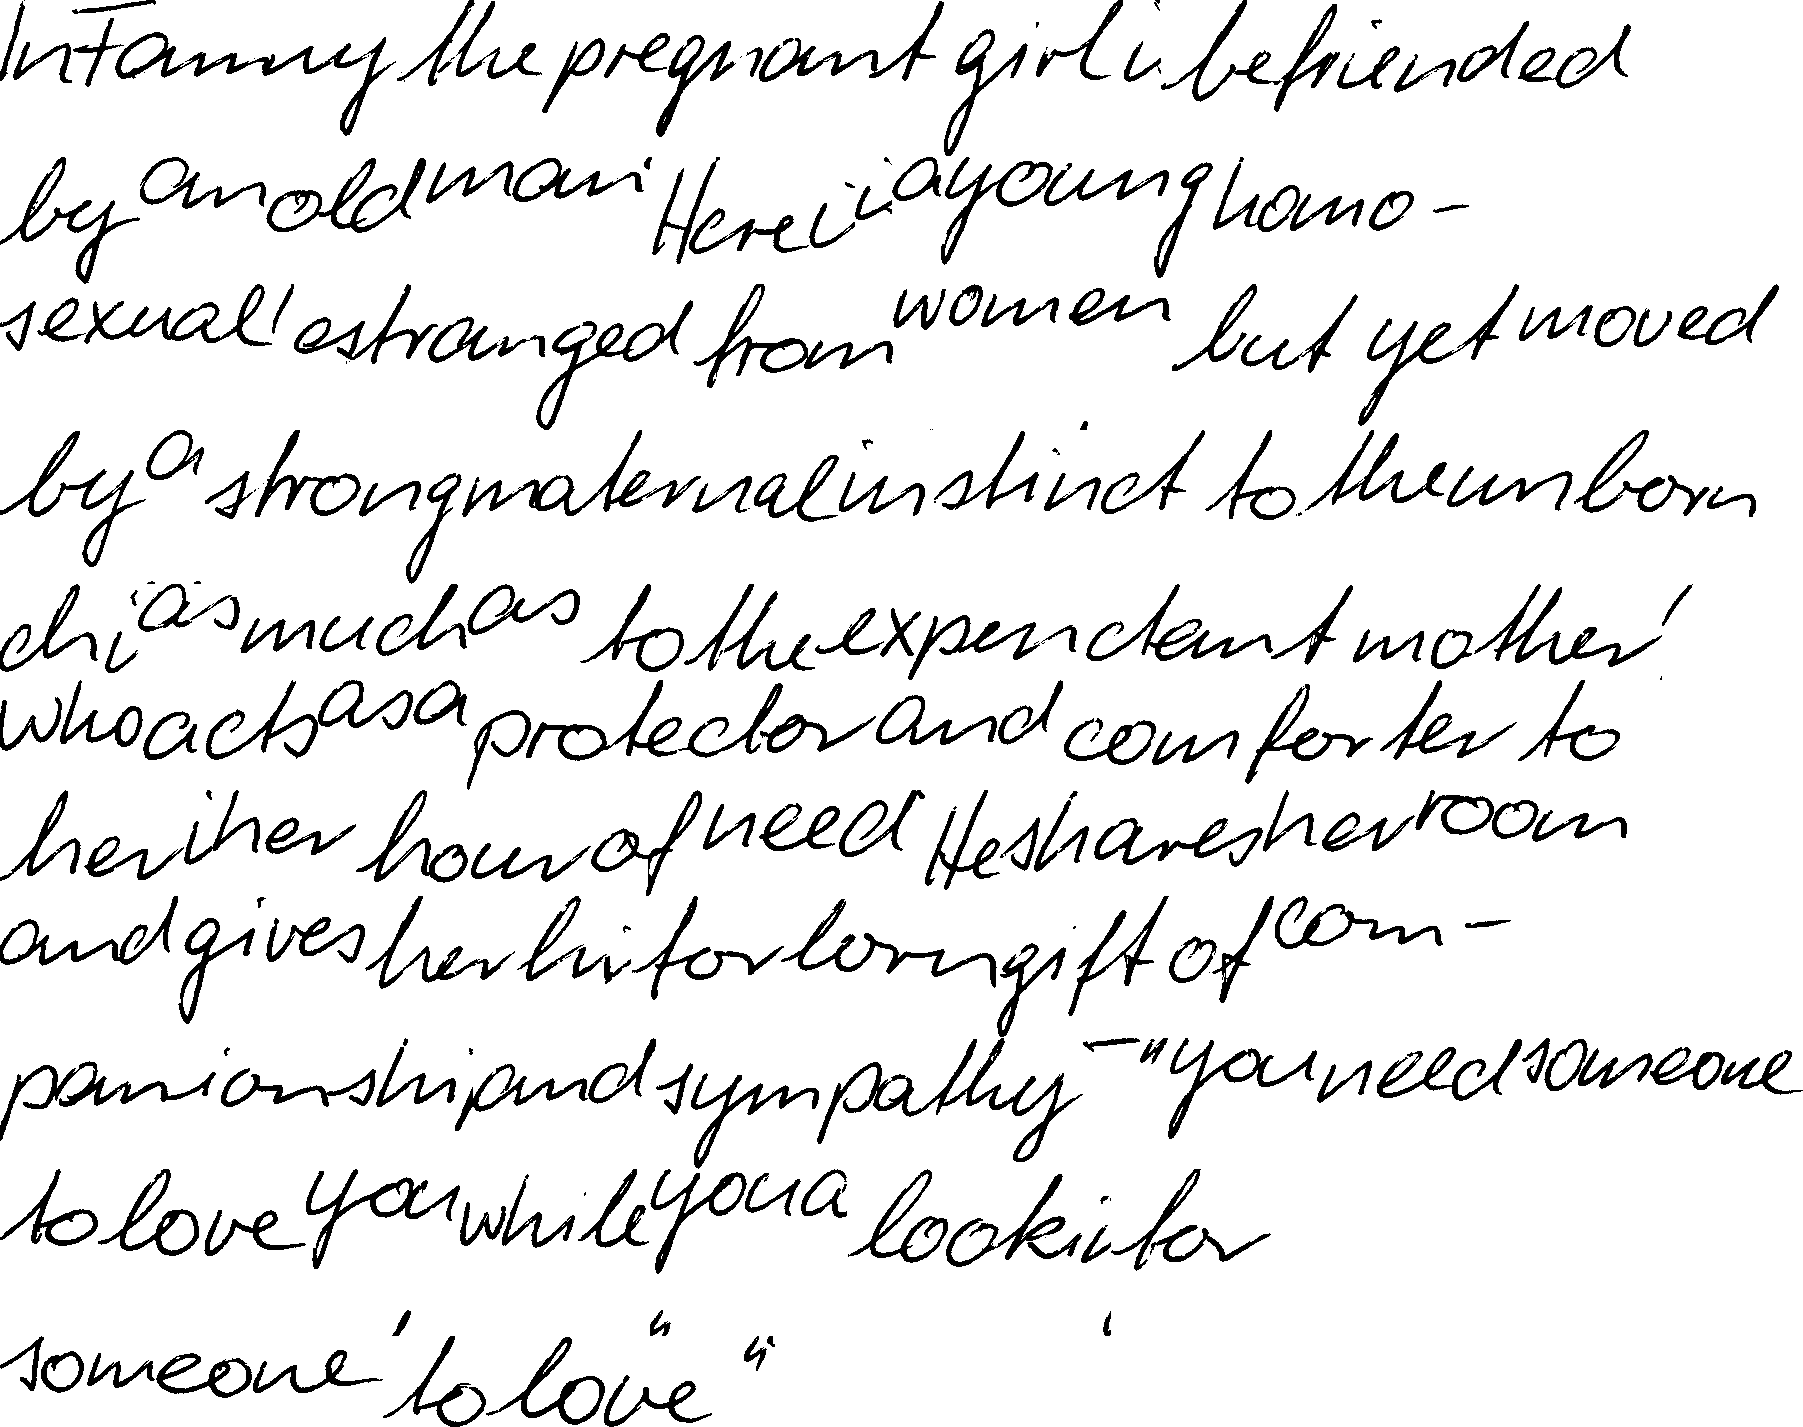 In Fanny the pregnant girl i befriended
by an old man Here i a young homo-
sexual, estranged from women but yet moved
by a strong maternal instinct to the unborn
chi as much as to the expectant mother,
who acts as a protector and comforter to
her i her hour of need He shares her room
and gives her hi forlorn gift of com-
panionship and sympathy - "you need someone
to love you while you a looki for
someone ' to love" "